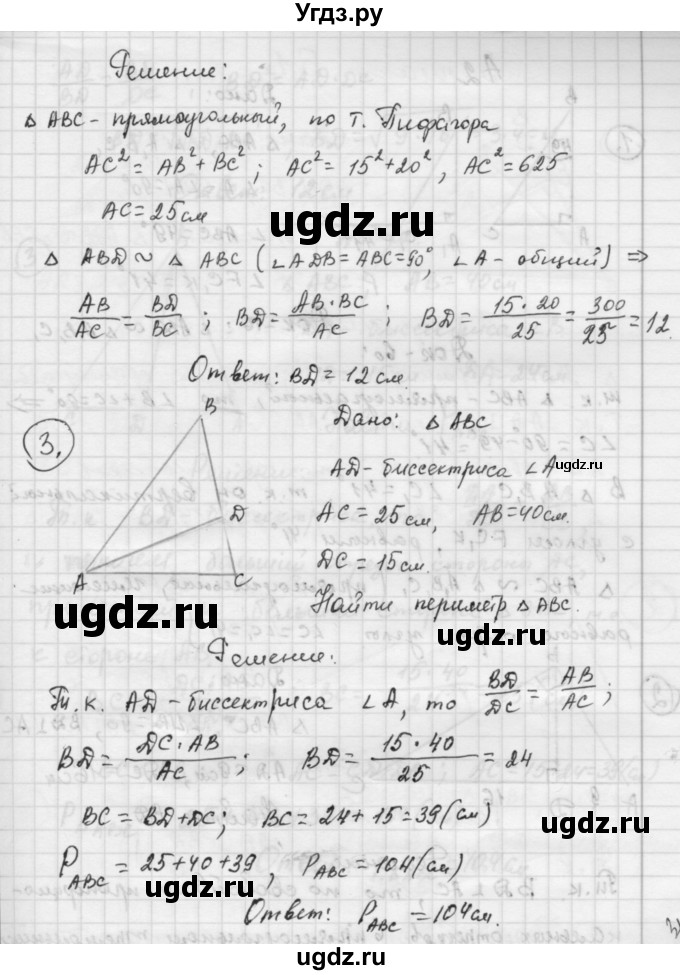 Угдз.ру
Решение:
△ ABC - прямоугольный, по т. Пифагора
AC² = AB² + BC² ; AC² = 15² + 20² , AC² = 625
AC = 25 см
ugdz.ru
△ ABD ∾ △ ABC ( ∠ADB = ABC = 90°, ∠A - общий) ⇒
AB/AC = BD/BC ; BD = AB·BC/AC ; BD = 15·20/25 = 300/25 = 12.
ugdz.ru ugdz.ru
Ответ: BD = 12 см.
3.
B
D
A
C
Дано: △ ABC
AD - биссектриса ∠A
ugdz.ru
AC = 25 см, AB = 40 см.
DC = 15 см.
Найти периметр △ ABC.
ugdz.ru
ugdz.ru
Решение:
Т. к. AD - биссектриса ∠A, то BD/DC = AB/AC ;
BD = DC·AB/AC ; BD = 15·40/25 = 24
ugdz.ru
BC = BD + DC ; BC = 24 + 15 = 39 (см)
ugdz.ru
P ABC = 25 + 40 + 39 , P ABC = 104 (см)
ugdz.ru
Ответ: P ABC = 104 см.
ugdz.ru